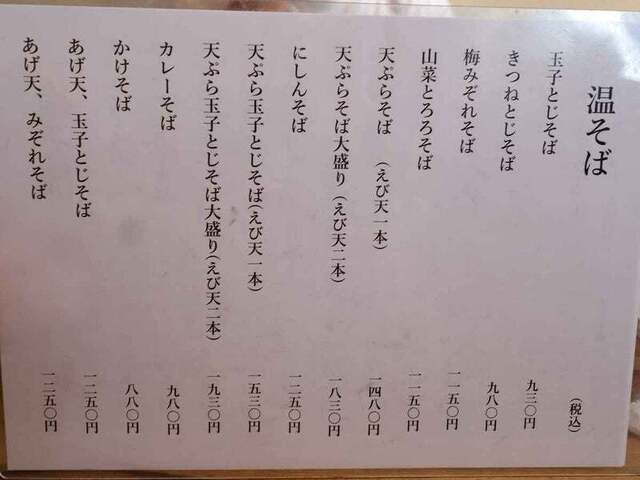 温そば
(税込)
玉子とじそば 九三〇円
きつねとじそば 九八〇円
梅みぞれそば 一一五〇円
山菜とろろそば 一一五〇円
天ぷらそば (えび天一本) 一四八〇円
天ぷらそば大盛り (えび天二本) 一八三〇円
にしんそば 一二五〇円
天ぷら玉子とじそば(えび天一本) 一五三〇円
天ぷら玉子とじそば大盛り(えび天二本) 一九三〇円
カレーそば 九八〇円
かけそば 八八〇円
あげ天、玉子とじそば 一二五〇円
あげ天、みぞれそば 一二五〇円